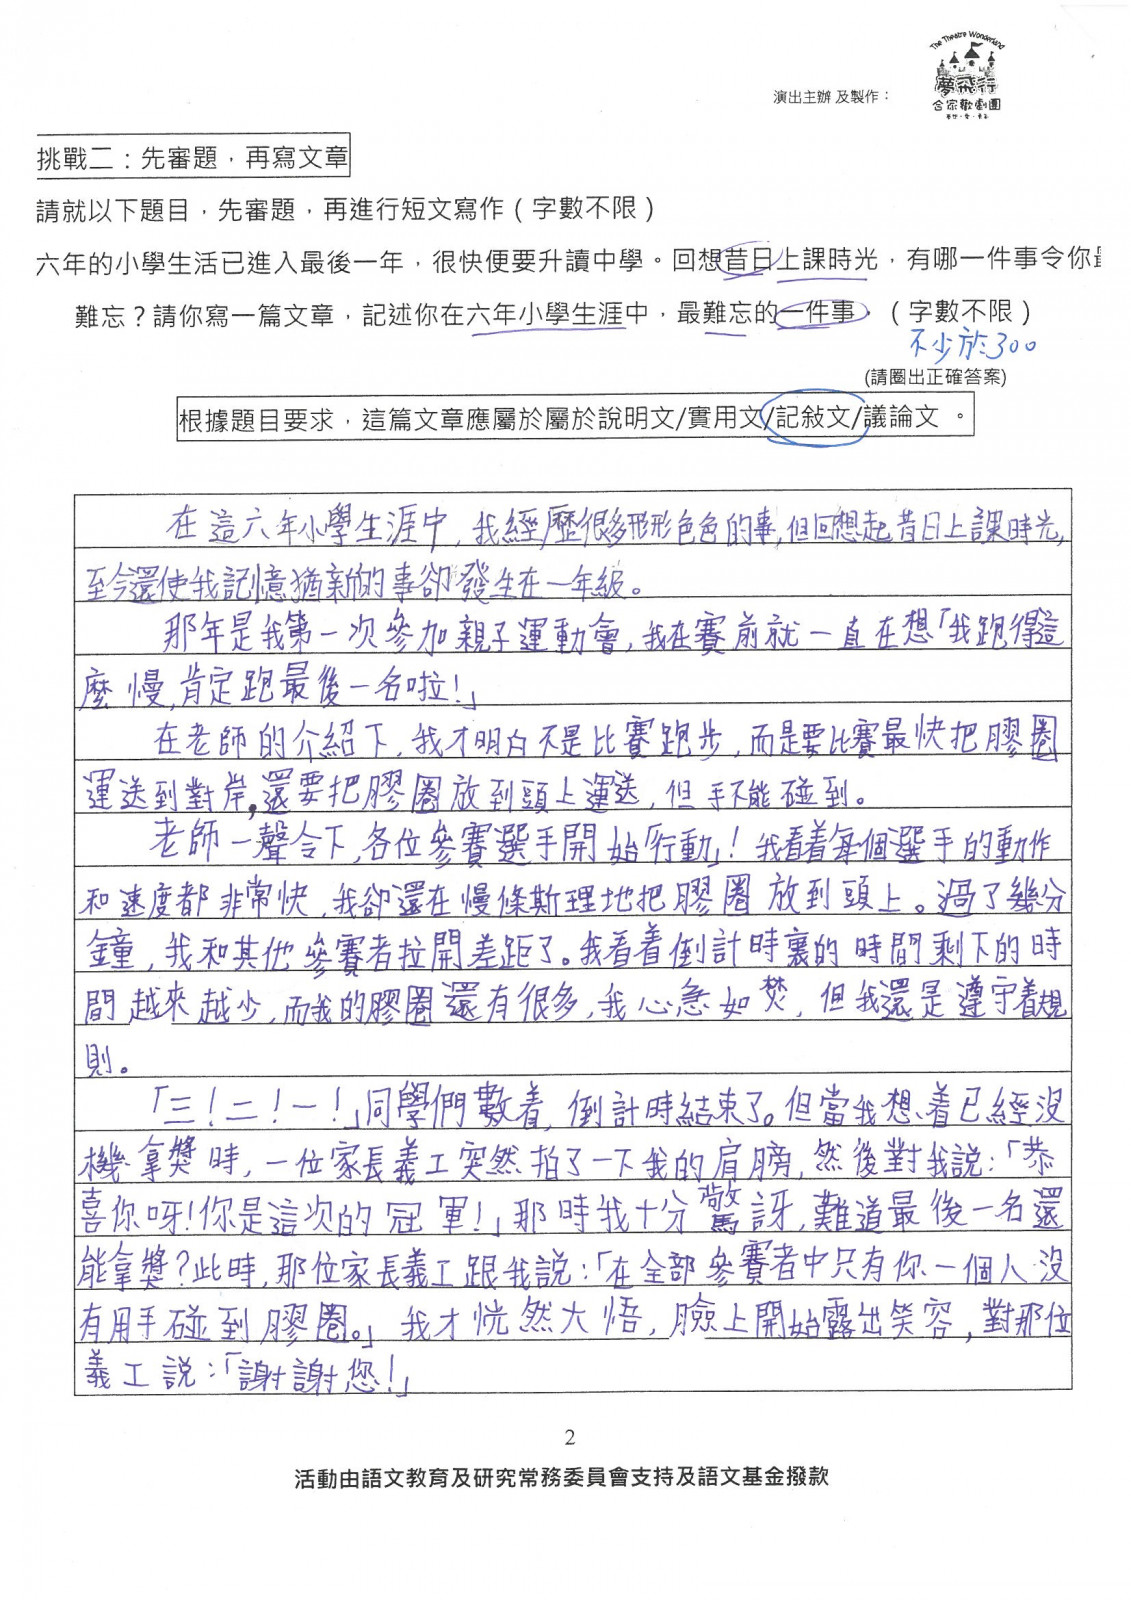 The Theatre Wonderland
夢飛行
合家歡劇團
演出主辦 及製作：
挑戰二：先審題，再寫文章
請就以下題目，先審題，再進行短文寫作（字數不限）
六年的小學生活已進入最後一年，很快便要升讀中學。回想昔日上課時光，有哪一件事令你最
難忘？請你寫一篇文章，記述你在六年小學生涯中，最難忘的一件事。（字數不限）
不少於300
(請圈出正確答案)
根據題目要求，這篇文章應屬於屬於說明文/實用文/記敍文/議論文 。
在這六年小學生涯中，我經歷很多形形色色的事，但回想起昔日上課時光，
至今還使我記憶猶新的事卻發生在一年級。
那年是我第一次參加親子運動會，我在賽前就一直在想「我跑得這
麼慢，肯定跑最後一名啦！」
在老師的介紹下，我才明白不是比賽跑步，而是要比賽最快把膠圈
運送到對岸，還要把膠圈放到頭上運送，但手不能碰到。
老師一聲令下，各位參賽選手開始「行動」！我看着每個選手的動作
和速度都非常快，我卻還在慢條斯理地把膠圈放到頭上。過了幾分
鐘，我和其他參賽者拉開差距了。我看着倒計時裏的時間剩下的時
間越來越少，而我的膠圈還有很多，我心急如焚，但我還是遵守着規
則。
「三！二！一！」同學們數着，倒計時結束了。但當我想着已經沒
機拿獎時，一位家長義工突然拍了一下我的肩膀，然後對我說：「恭
喜你呀！你是這次的冠軍！」那時我十分驚訝，難道最後一名還
能拿獎？此時，那位家長義工跟我說：「在全部參賽者中只有你一個人沒
有用手碰到膠圈。」我才恍然大悟，臉上開始露出笑容，對那位
義工說：「謝謝您！」
2
活動由語文教育及研究常務委員會支持及語文基金撥款